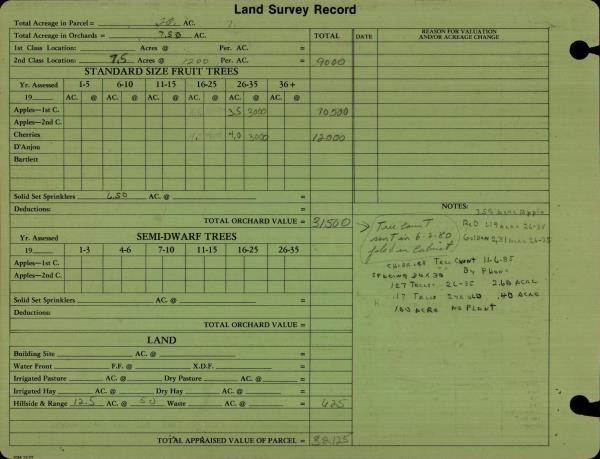 Land Survey Record
Total Acreage in Parcel = 20. AC.
Total Acreage in Orchards = 7.50 AC. TOTAL DATE REASON FOR VALUATION AND/OR ACREAGE CHANGE
1st Class Location: Acres @ Per. AC. =
2nd Class Location: 7.5 Acres @ 1200 Per. AC. = 9000
STANDARD SIZE FRUIT TREES
Yr. Assessed 1-5 6-10 11-15 16-25 26-35 36+
19 AC. @ AC. @ AC. @ AC. @ AC. @ AC. @
Apples—1st C. 3.5 3000 10500
Apples—2nd C.
Cherries 4.0 3000 12000
D'Anjou
Bartlett
Solid Set Sprinklers 6.50 AC. @ =
Deductions: =
TOTAL ORCHARD VALUE = 31500
SEMI-DWARF TREES
Yr. Assessed
19 1-3 4-6 7-10 11-15 16-25 26-35
Apples—1st C.
Apples—2nd C.
Solid Set Sprinklers AC. @ =
Deductions: =
TOTAL ORCHARD VALUE =
LAND
Building Site AC. @ =
Water Front F.F. @ X.D.F. =
Irrigated Pasture AC. @ Dry Pasture AC. @ =
Irrigated Hay AC. @ Dry Hay AC. @ =
Hillside & Range 12.5 AC. @ 50 Waste AC. @ = 625
TOTAL APPRAISED VALUE OF PARCEL = 32125
NOTES:
Tree Count
sent in 6-2-80
filed in Cabinet
3.50 Acre Apple
Red 1.19 Acre 26-35
Golden 2.31 Acre 26-35
Cherries Tree Count 11-6-85
Spacing By Phone
127 Trees 26-35 2.60 Acre
17 Trees .40 Acre
1.00 Acre No Plant